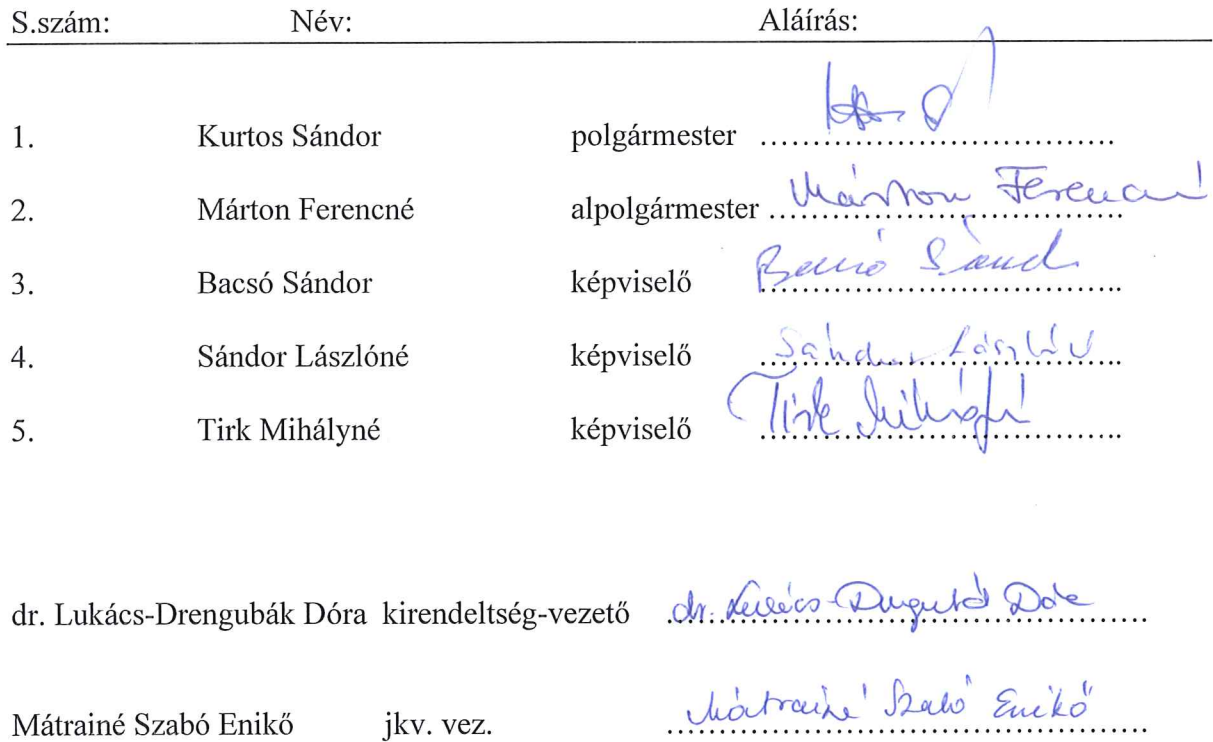 S.szám: Név: Aláírás:
1. Kurtos Sándor polgármester ........................................
2. Márton Ferencné alpolgármester ........................................ Márton Ferencné
3. Bacsó Sándor képviselő ........................................ Bacsó Sánd
4. Sándor Lászlóné képviselő ........................................ Sándor Lászlóné
5. Tirk Mihályné képviselő ........................................ Tirk Mihályné
dr. Lukács-Drengubák Dóra kirendeltség-vezető ........................................ dr. Lukács-Drengubák Dóra
Mátrainé Szabó Enikő jkv. vez. ........................................ Mátrainé Szabó Enikő